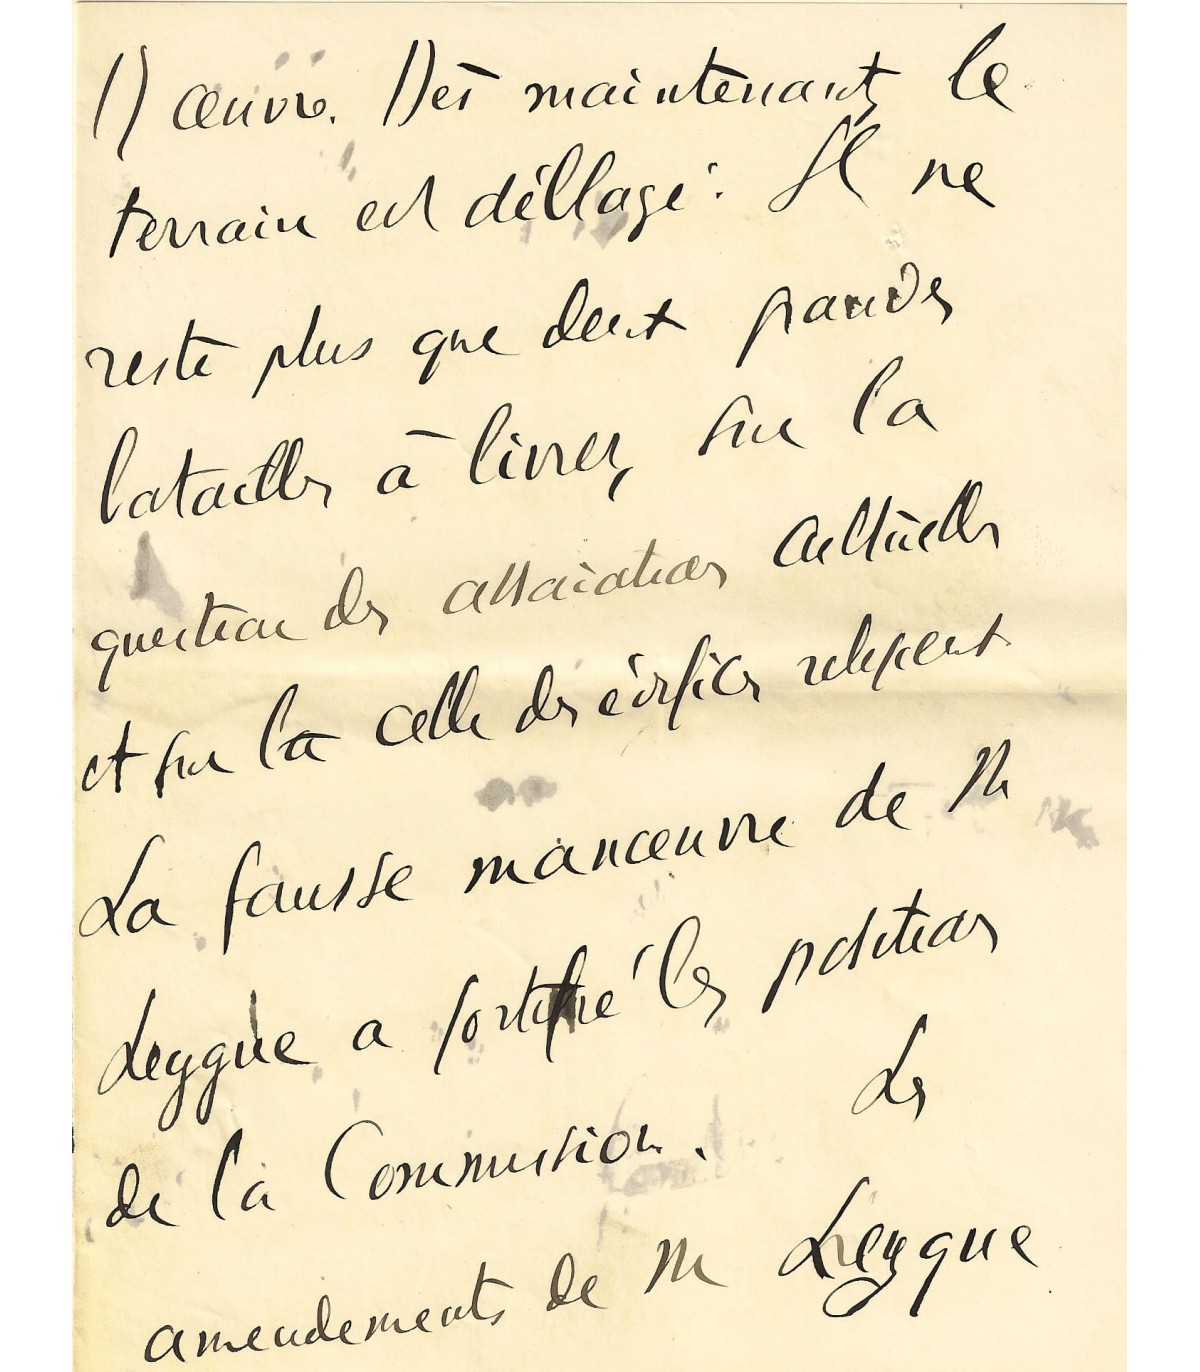 1) œuvre. Dès maintenant, le
terrain est déblayé. Il ne
reste plus que deux grandes
batailles à livrer, sur la
question des associations cultuelles
et sur la celle des édifices religieux
La fausse manœuvre de M
Leygue a fortifié les positions
de la Commission. Les
amendements de M Leygue